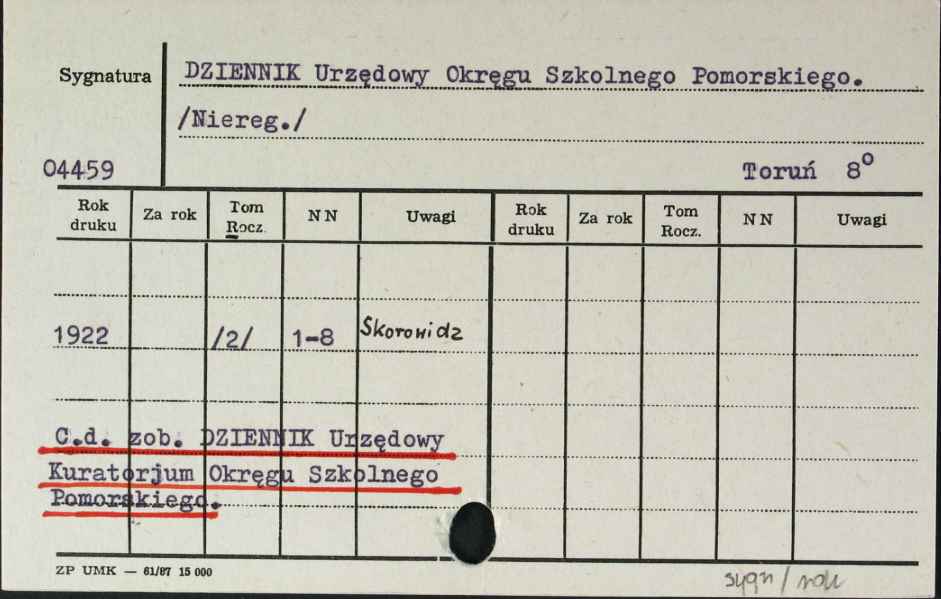 Sygnatura
DZIENNIK Urzędowy Okręgu Szkolnego Pomorskiego.
/Niereg./
04459
Toruń 8°
Rok druku Za rok Tom Rocz. NN Uwagi Rok druku Za rok Tom Rocz. NN Uwagi
1922 /2/ 1-8 Skorowidz
C.d. zob. DZIENNIK Urzędowy
Kuratorjum Okręgu Szkolnego
Pomorskiego.
ZP UMK — 61/87 15 000
sygn/rok